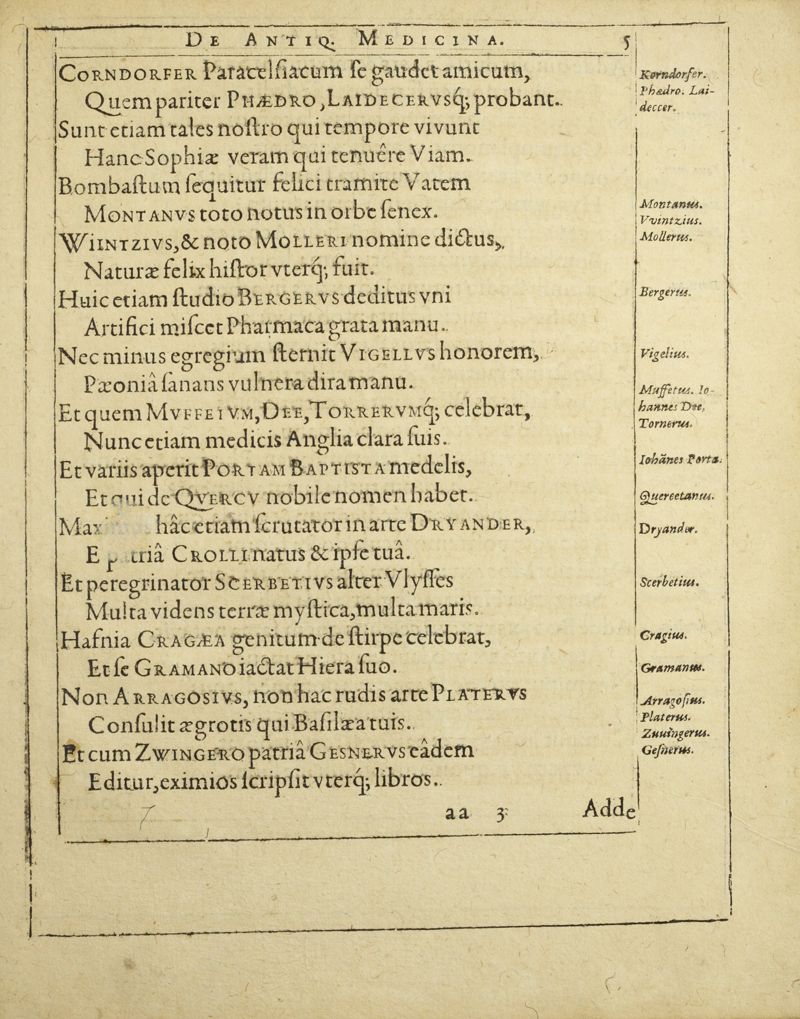 DE ANTIQ. MEDICINA. 5
CORNDORFER Paracelſiacum ſe gaudet amicum,
Quem pariter PHÆDRO, LAIDECERVSq; probant.
Sunt etiam tales noſtro qui tempore vivunt
Hanc Sophiæ veram qui tenuêre Viam.
Bombaſtum ſequitur felici tramite Vatem
MONTANVS toto notus in orbe ſenex.
WIINTZIVS, & noto MOLLERI nomine dictus,
Naturæ felix hiſtor vterq; fuit.
Huic etiam ſtudio BERGERVS deditus vni
Artifici miſcet Pharmaca grata manu.
Nec minus egregium ſternit VIGELLVS honorem,
Pæoniâ ſanans vulnera dira manu.
Et quem MVFFEIVM, DEE, TORRERVMq; celebrat,
Nunc etiam medicis Anglia clara ſuis.
Et variis aperit PORTAM BAPTISTA medelis,
Et qui de QVERCV nobile nomen habet.
hâc etiam ſcrutator in arte DRYANDER,
E triâ CROLLI natus & ipſe tuâ.
Et peregrinator SCERBETIVS alter Vlyſſes
Multa videns terræ myſtica, multa maris.
Hafnia CRAGÆA genitum de ſtirpe celebrat,
Et ſe GRAMANO iactat Hiera ſuo.
Non ARRAGOSIVS, non hac rudis arte PLATERVS
Conſulit ægrotis qui Baſilæa tuis.
Et cum ZWINGERO patriâ GESNERVS eâdem
Editur, eximios ſcripſit vterq; libros.
aa 3 Adde
Korndorfer.
Phædro. Lai-
deccer.
Montanus.
Vvintzius.
Mollerus.
Bergerus.
Vigelius.
Muffetus. Io-
hannes Dee,
Tornerus.
Iohānes Porta.
Quercetanus.
Dryander.
Scerbetius.
Cragius.
Gramanus.
Arragoſius.
Platerus.
Zuuingerus.
Geſnerus.